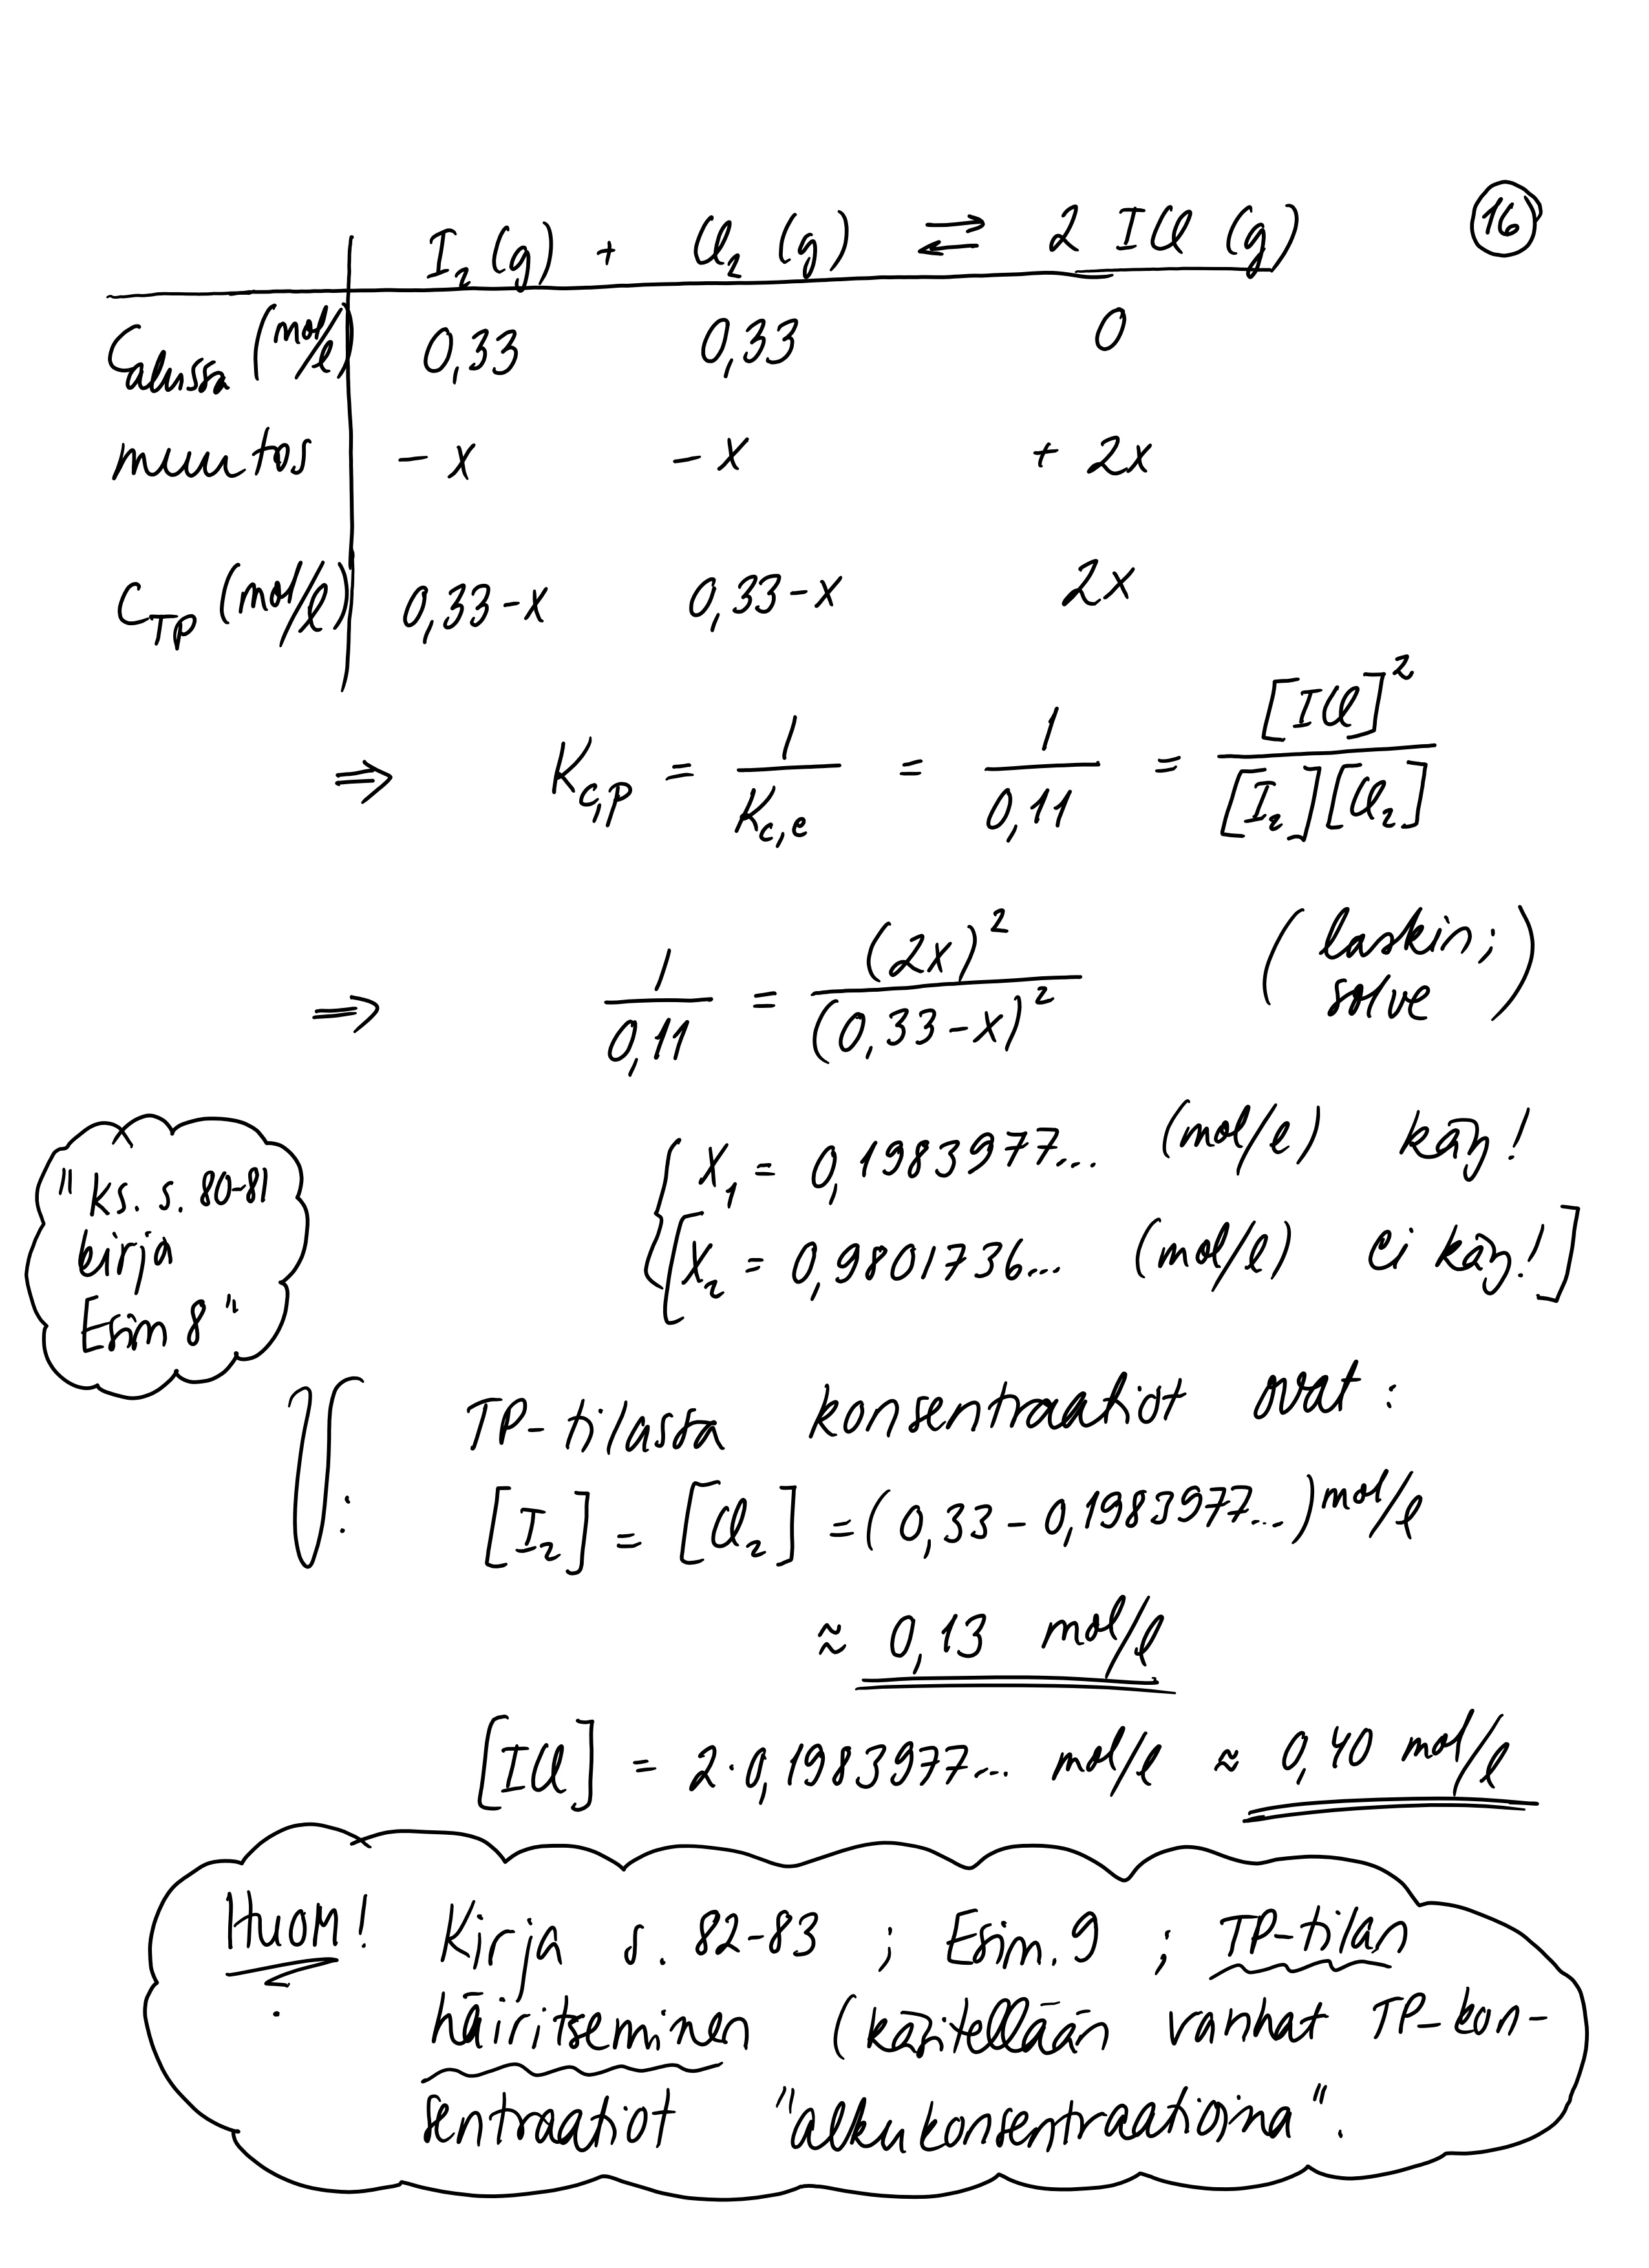 16
I₂ (g) + Cl₂ (g) ⇄ 2 ICl (g)
C_alussa (mol/l) 0,33 0,33 0
muutos - x - x + 2x
C_TP (mol/l) 0,33-x 0,33-x 2x
⇒ K_c,p = 1/K_c,e = 1/0,11 = [ICl]²/[I₂][Cl₂]
⇒ 1/0,11 = (2x)²/(0,33-x)² (laskin; solve)
{ x₁ = 0,1983977... (mol/l) käy!
[x₂ = 0,9801736... (mol/l) ei käy!]
"ks. s. 80-81
kirja
Esim 8"
V: TP-tilassa konsentraatiot ovat:
[I₂] = [Cl₂] = (0,33 - 0,1983977...) mol/l
≈ 0,13 mol/l
[ICl] = 2·0,1983977... mol/l ≈ 0,40 mol/l
HUOM! Kirja s. 82-83 ; Esim. 9 ; TP-tilan
häiritseminen (käsitellään vanhat TP-kon-
sentraatiot "alkukonsentraatioina".